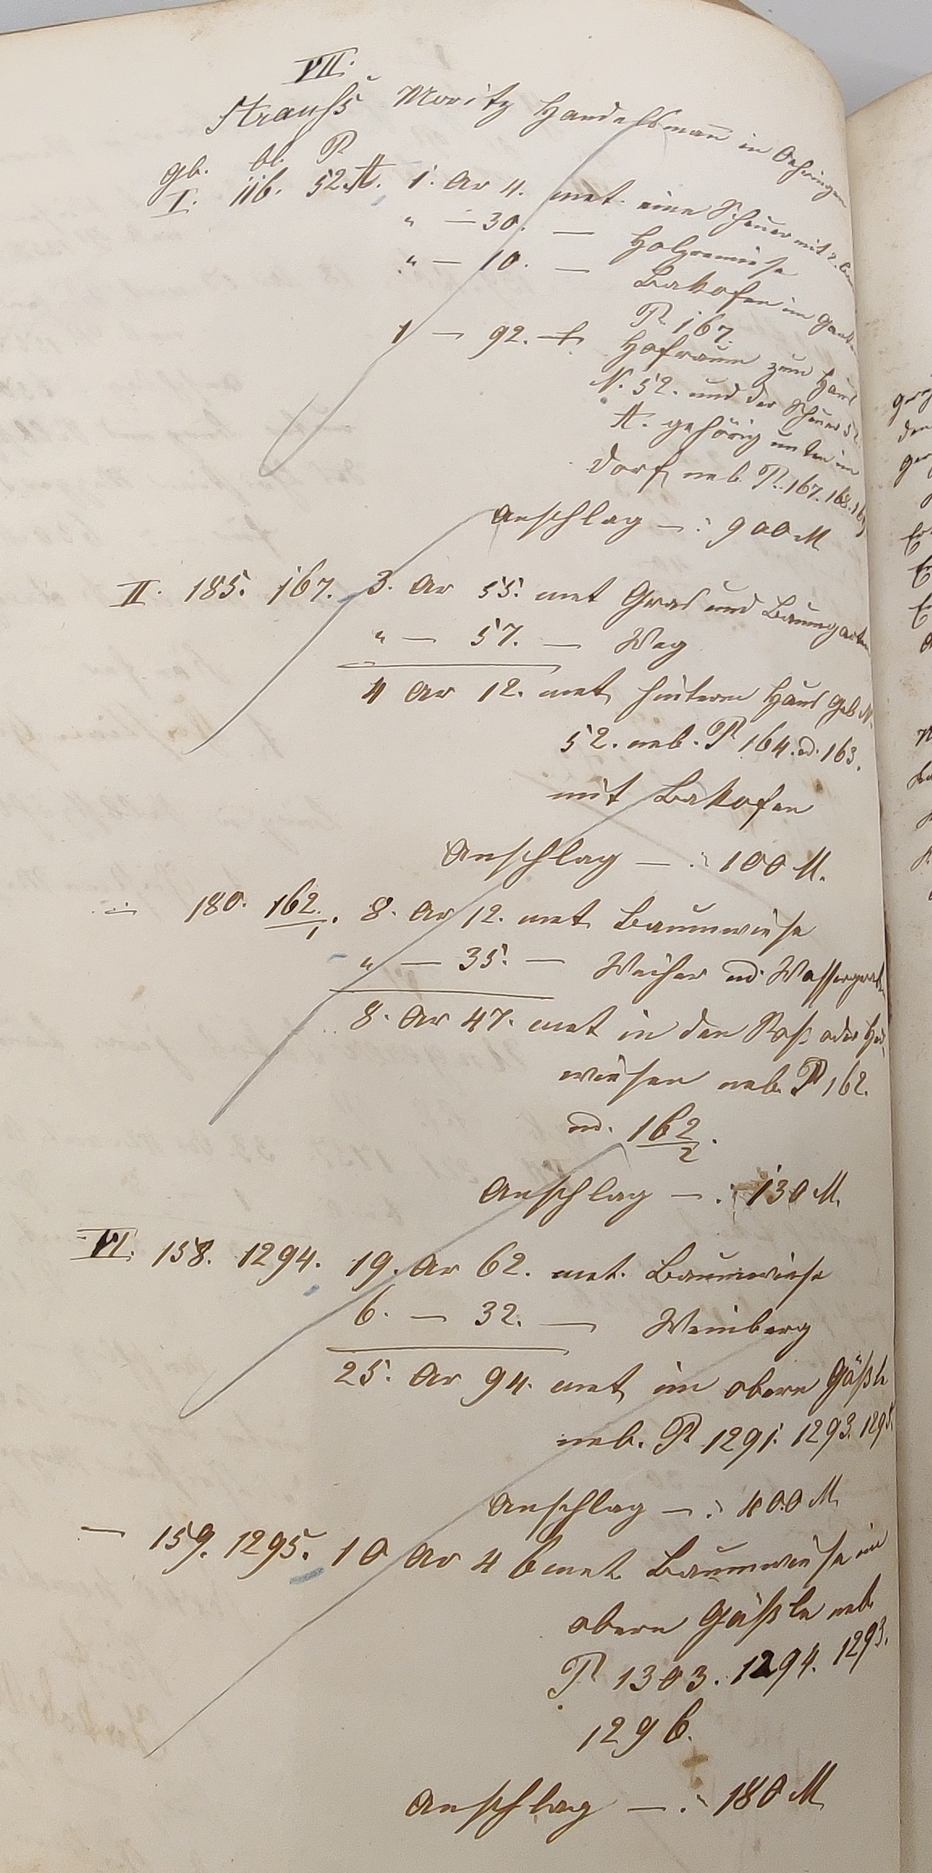 VII.
Strauss Moritz Handelsmann in Oehringen
gb. bl. P
I. 116. 52.A. 1. Ar 4. met. eine Scheuer mit
" — 30. — Holzremise
" — 10. — Bakofen im
P. 167.
1 — 92. — Hofraum zum Haus
N. 52. und der Scheuer 52.
A. gehörig unten im
Dorf, neb. P. 167. 168.
Anschlag — : 900 M
II. 185. 167. 3. Ar 55. met Gras und Baumgarten
" — 57. — Weg
4 Ar 12. met, hinterm Haus Geb. N.
52. neb. P 164. ud. 163.
mit Bakofen
Anschlag — : 100 M.
— 180. 162/1. 8. Ar 12. met Baumwiese
" — 35. — Weiher ud. Wassergraben
8. Ar 47. met in den oder
wiesen neb. P 162.
ud. 162/2.
Anschlag — : 130 M.
VI. 158. 1294. 19. Ar 62. met. Baumwiese
6. — 32. — Weinberg
25. Ar 94. met, im obern Gäßle
neb. P 1291. 1293. 1295.
Anschlag — : 400 M.
— 159. 1295. 10 Ar 46 met Baumwiese im
obern Gäßle neb.
P 1303. 1294. 1293.
1296.
Anschlag — : 180 M